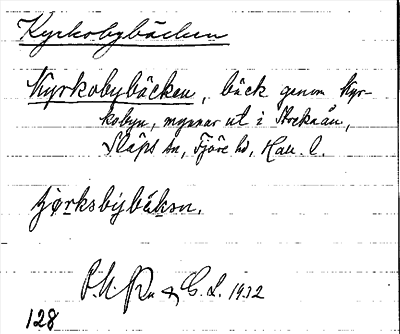 Kyrkobybäcken
Kyrkobybäcken, bäck genom Kyr-
kobyn, mynnar ut i Stocksån,
Släps sn, Fjäre hd, Hall. l.
tjørksbýbäksn.
& C. L. 1932
128